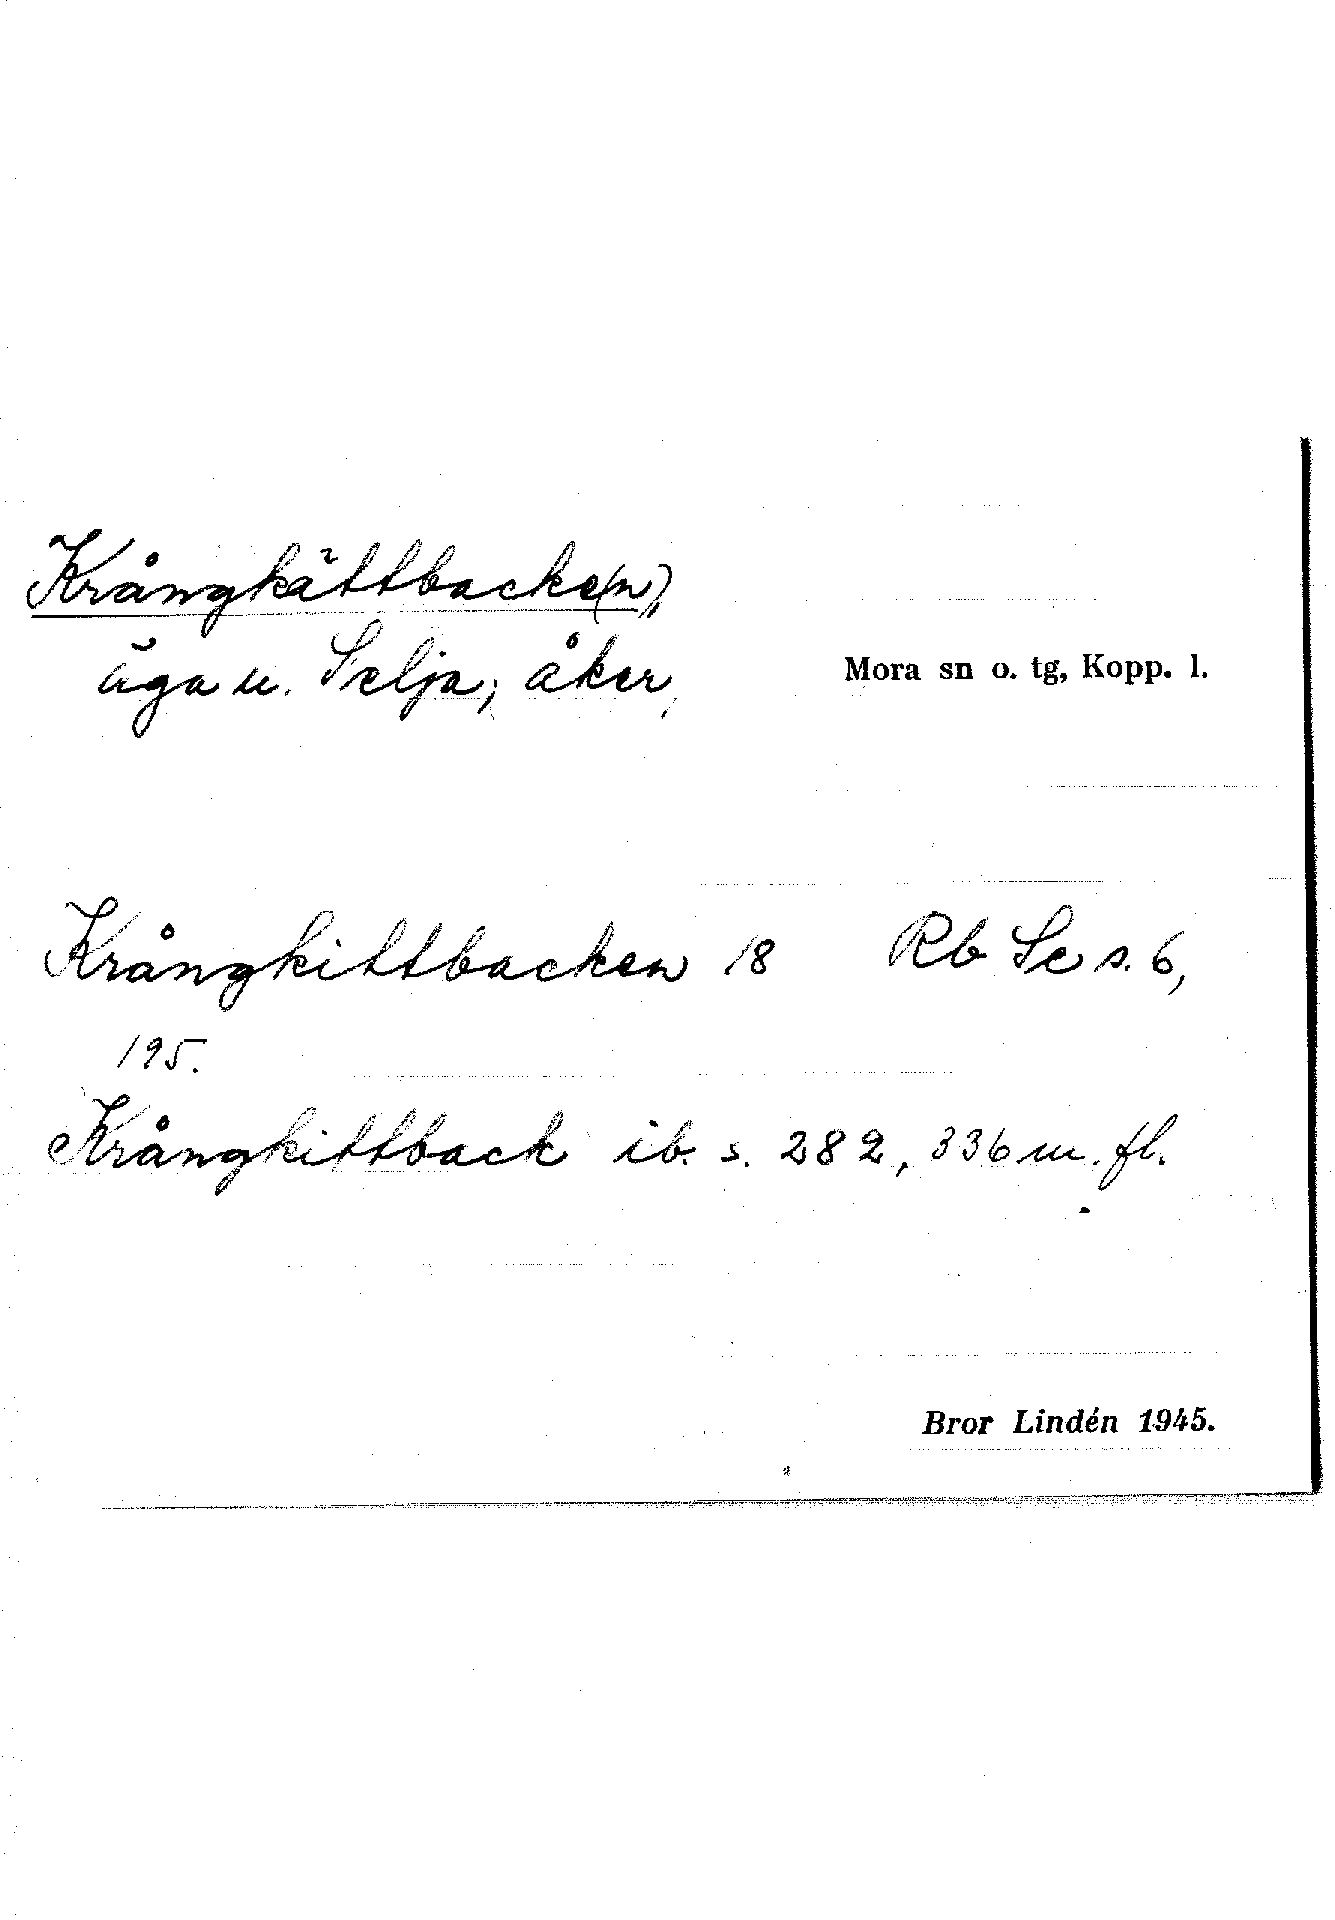 Krångkättbacke(n),
äga u. Selja; åker,
Mora sn o. tg, Kopp. l.
Krångkittbacken 18 Rb Se s. 6,
195.
Krångkittback ib. s. 282, 336 m. fl.
Bror Lindén 1945.